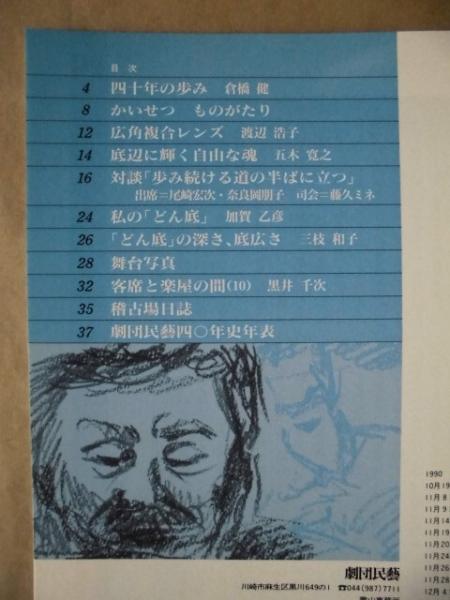 目次
4 四十年の歩み 倉橋 健
8 かいせつ ものがたり
12 広角複合レンズ 渡辺 浩子
14 底辺に輝く自由な魂 五木 寛之
16 対談「歩み続ける道の半ばに立つ」
出席=尾崎宏次・奈良岡朋子 司会=藤久ミネ
24 私の「どん底」 加賀 乙彦
26 「どん底」の深さ、底広さ 三枝 和子
28 舞台写真
32 客席と楽屋の間(10) 黒井 千次
35 稽古場日誌
37 劇団民藝四〇年史年表
劇団民藝
川崎市麻生区黒川649の1 ☎044(987)7711
1990
10月19
11月8
11月9
11月14
11月19
11月20
11月24
11月26
11月28
12月4